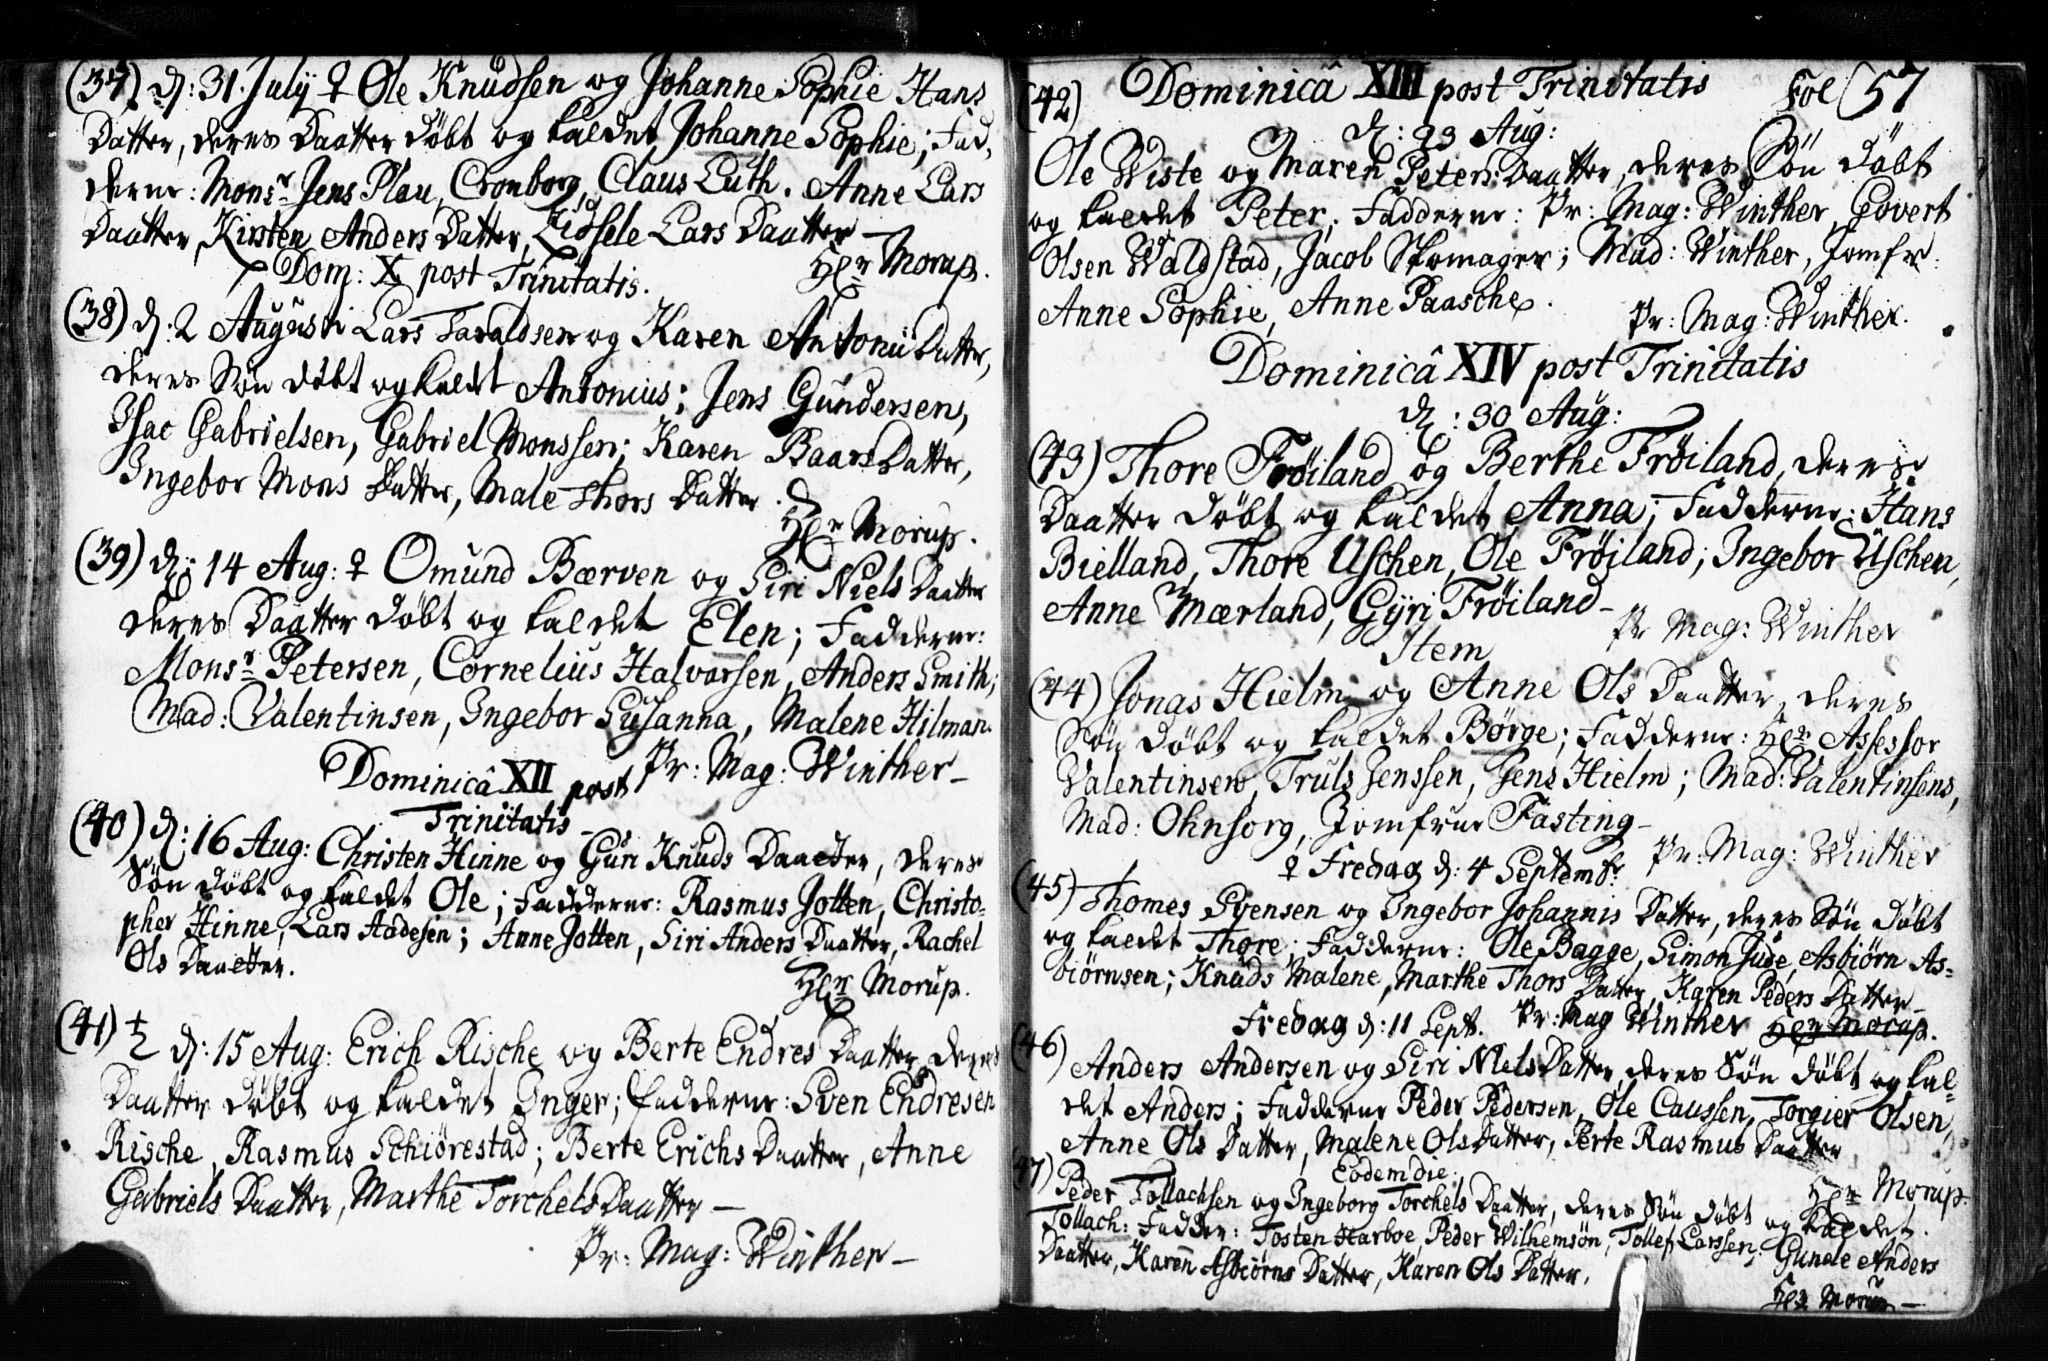 (37) d: 31. July ♀ Ole Knudsen og Johanne Sophie Hans
Datter, deres Daatter døbt og kaldet Johanne Sophie; Fad-
derne: Monsr Jens Plau, Cronborg, Claus Luth. Anne Lars
Daatter, Kirsten Anders Datter, Zidsele Lars Daatter —
Hr Morup.
Dom: X post Trinitatis.
(38) d: 2 Augusti Lars Taraldsen og Karen Antonii Datter,
deres Søn døbt og kaldet Antonius; Jens Gundersen,
Isac Gabrielsen, Gabriel Monssen; Karen Baars Datter,
Ingebor Mons Datter, Male Thors Datter.
Hr Morup.
(39) d: 14 Aug: ♀ Omund Bærven og Siri Niels Daatter
deres Daatter døbt og kaldet Elen; Fadderne:
Monsr Petersen, Cornelius Halvorsen, Anders Smith;
Mad: Valentinsen, Ingebor Susanna, Malene Hilman.
Pr: Mag: Winther —
Dominicâ XII post
Trinitatis —
(40) d: 16 Aug: Christen Hinne og Guri Knuds Daatter, deres
Søn døbt og kaldet Ole; Fadderne: Rasmus Jotten, Christo-
pher Hinne, Lars Aadesen; Anne Jotten, Siri Anders Daatter, Rachel
Ols Daatter.
Hr Morup.
(41) ♄ d: 15 Aug: Erich Rische og Berte Endres Daatter, deres
Daatter døbt og kaldet Inger; Fadderne: Sven Endresen
Rische, Rasmus Schiørestad; Berte Erichs Daatter, Anne
Gabriels Daatter, Marthe Torchels Daatter —
Pr: Mag: Winther —
Fol (57
Dominicâ XIII post Trinitatis
(42) d: 23 Aug:
Ole Wiste og Maren Peters Daatter, deres Søn døbt
og kaldet Peter; Fadderne: Pr: Mag: Winther, Govert
Olsen Waldstad, Jacob Skomager; Mad: Winther, Jomfr:
Anne Sophie, Anne Paasche.
Pr: Mag: Winther.
Dominicâ XIV post Trinitatis
d: 30 Aug:
(43) Thore Frøiland og Berthe Frøiland, deres
Daatter døbt og kaldet Anna; Fadderne: Hans
Bielland, Thore Uschen, Ole Frøiland; Ingebor Uschen,
Anne Mærland, Gyri Frøiland —
Pr Mag: Winther
Item
(44) Jonas Hielm og Anne Ols Daatter, deres
Søn døbt og kaldet Børge; Fadderne: Hr Assessor
Valentinsen, Truls Jenssen, Jens Hielm; Mad: Valentinsens,
Mad: Ohnsorg, Jomfrue Fasting —
Pr: Mag: Winther
♀ Fredag d: 4 Septembr
(45) Thomes Svensen og Ingebor Johannis Datter, deres Søn døbt
og kaldet Thore; Fadderne: Ole Bagge, Simon Jude, Asbiørn As-
biørnsen; Knuds Malene, Marthe Thors Datter, Karen Peders Datter —
Pr: Mag Winther Hr Morup.
Fredag d: 11 Sept.
(46) Anders Andersen og Siri Niels Datter, deres Søn døbt og kal-
det Anders; Fadderne Peder Pedersen, Ole Caussen, Torgier Olsen,
Anne Ols Datter, Malene Ols Datter, Berte Rasmus Daatter
Hr Morup.
Eodem die.
(47) Peder Tollachsen og Ingeborg Torchels Daatter, deres Søn døbt og kaldet
Tollach: Fadder: Tosten Harboe, Peder Wilhemsøn, Tollef Larssen; Gunele Anders
Daatter, Karen Asbiørns Datter, Karen Ols Datter.
Hr Morup —